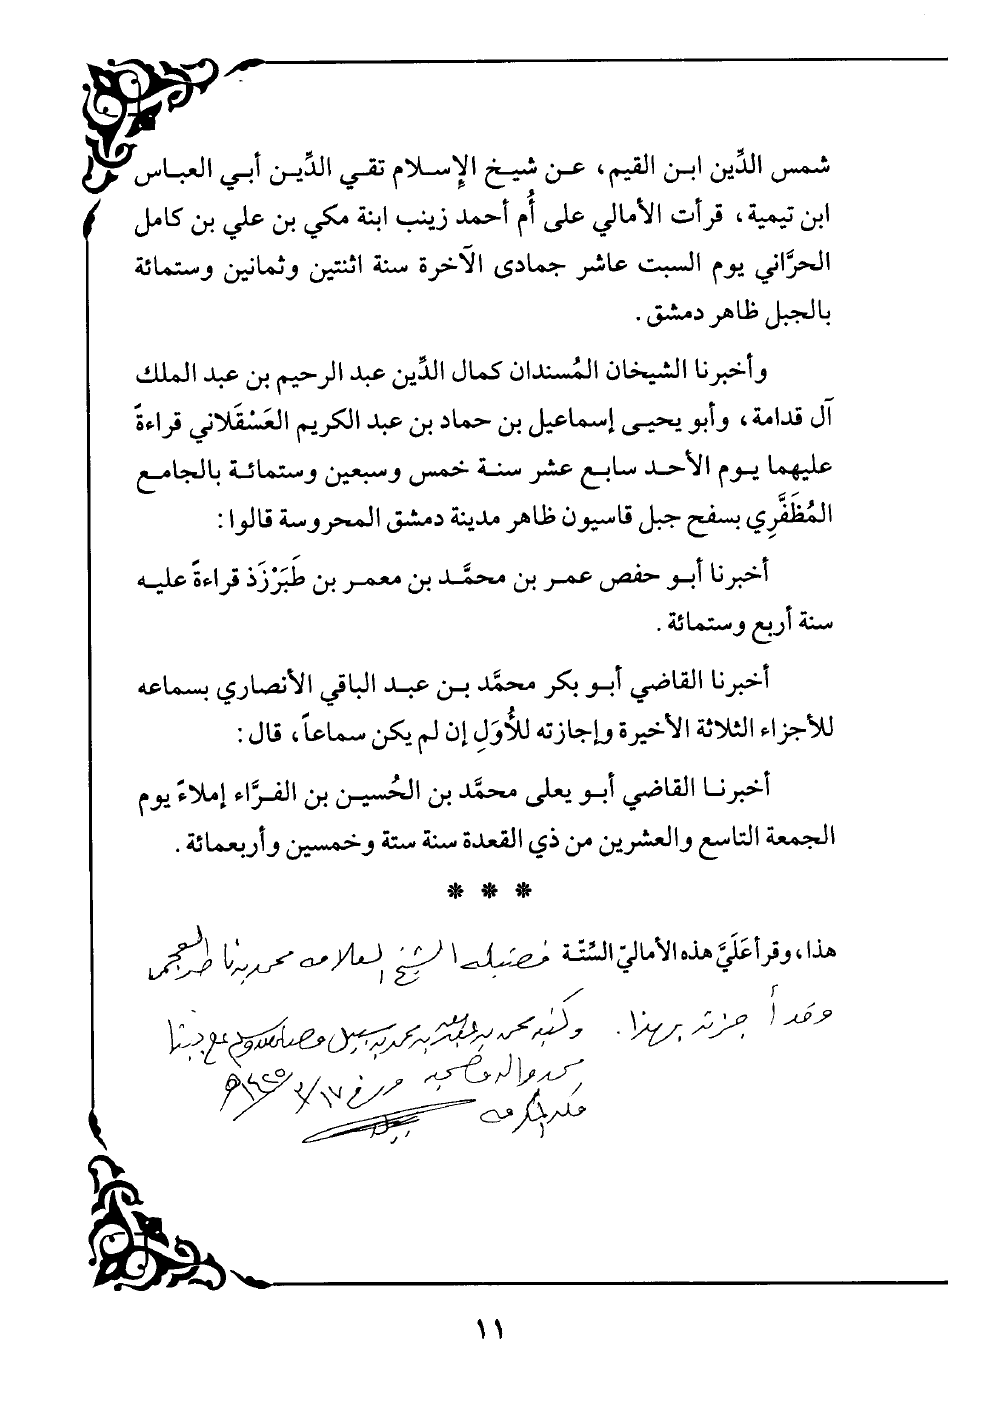 شمس الدِّين ابن القيم، عن شيخ الإسلام تقي الدِّين أبي العباس
ابن تيمية، قرأت الأمالي على أُم أحمد زينب ابنة مكي بن علي بن كامل
الحرَّاني يوم السبت عاشر جمادى الآخرة سنة اثنتين وثمانين وستمائة
بالجبل ظاهر دمشق.
وأخبرنا الشيخان المُسندان كمال الدِّين عبد الرحيم بن عبد الملك
آل قدامة، وأبو يحيى إسماعيل بن حماد بن عبد الكريم العَسْقَلاني قراءةً
عليهما يوم الأحد سابع عشر سنة خمس وسبعين وستمائة بالجامع
المُظَفَّرِي بسفح جبل قاسيون ظاهر مدينة دمشق المحروسة قالوا:
أخبرنا أبو حفص عمر بن محمَّد بن معمر بن طَبَرْزَذ قراءةً عليه
سنة أربع وستمائة.
أخبرنا القاضي أبو بكر محمَّد بن عبد الباقي الأنصاري بسماعه
للأجزاء الثلاثة الأخيرة وإجازته للأُوَلِ إن لم يكن سماعاً، قال:
أخبرنا القاضي أبو يعلى محمَّد بن الحُسين بن الفرَّاء إملاءً يوم
الجمعة التاسع والعشرين من ذي القعدة سنة ستة وخمسين وأربعمائة.
* * *
هذا، وقرأ عَلَيَّ هذه الأماليّ السِّتَّة فضيلة الشيخ العلامة محمد بن ناصر العجمي
وقد أجزته بهذا. وكتبه محمد بن عبد الله بن محمد بن سبيل وصلى الله وسلم على نبينا
محمد وآله وصحبه ١٧/٣/١٤٢٥هـ
مكة المكرمة
١١